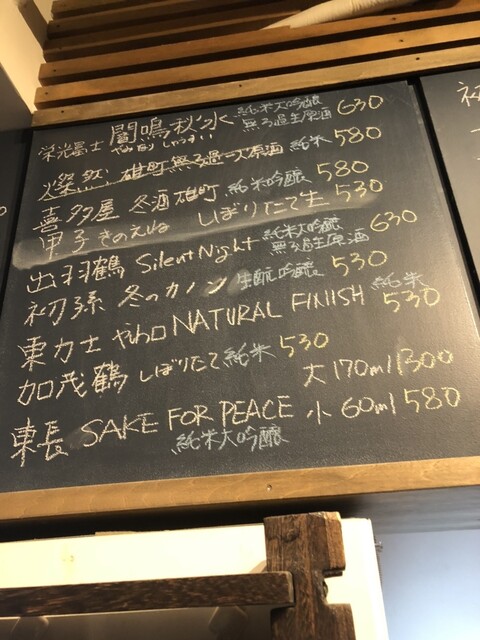 栄光冨士 闇鳴秋水 純米大吟醸 無ろ過生原酒 630
やみなり しゅうすい
燦然 雄町無ろ過一火原酒 純米 580
喜多屋 冬酒雄町 純米吟醸 580
甲子きのえね しぼりたて生 530
出羽鶴 Silent Night 純米大吟醸 無ろ過生原酒 630
初孫 冬のカノン 生酛吟醸 530
東力士 やわ口 NATURAL FINIISH 純米 530
加茂鶴 しぼりたて純米 530
大 170ml 1300
東長 SAKE FOR PEACE 小 60ml 580
純米大吟醸
初